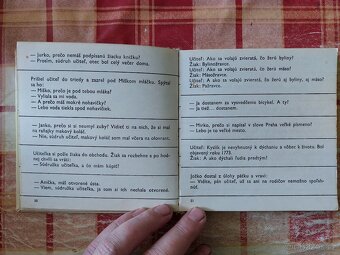 — Janko, prečo nemáš podpísanú žiacku knižku?
— Prosím, súdruh učiteľ, otec bol celý večer doma.
Prišiel učiteľ do triedy a zazrel pod Miškom mláčku. Spýtal
sa ho:
— Miško, prečo je pod tebou mláka?
— Vyliala sa mi voda.
— A prečo máš mokré nohavičky?
— Lebo voda tiekla pod nohavičkami.
— Janko, prečo si si neumyl zuby? Vidieť ti na nich, že si mal
na raňajky makový koláč.
— Nie, súdruh učiteľ, makový koláč som mal včera na olovrant.
Učiteľka si pošle žiaka do obchodu. Žiak sa rozbehne a po hodnej
chvíli sa vráti:
— Súdružka učiteľka, a čo im chýba?
— Anička, máš otvorené ústa.
— Viem, súdružka učiteľka, ja som si ich nechala otvorené.
20
Učiteľ: Ako sa volajú zvieratá, čo žerú byliny?
Žiak: Bylinožravce.
Učiteľ: Ako sa volajú zvieratá, čo žerú mäso?
Žiak: Mäsožravce.
Učiteľ: A ako sa volajú zvieratá, čo žerú aj byliny, aj mäso?
Žiak: Pažravce.
— Ja dostanem za vysvedčenie bicykel. A ty?
— Ja tiež... dostanem.
— Mirko, prečo si napísal v slove Praha veľké písmeno?
— Lebo je to veľké mesto.
Učiteľ: Kyslík je nevyhnutný k dýchaniu a nôbec k životu. Bol
objavený roku 1773.
Žiak: A ako dýchali ľudia predtým?
Jožko dostal z úlohy päťku a vraví:
— Vidíte, pán učiteľ, už sa ani na rodičov nemožno spoľah-
núť.
21